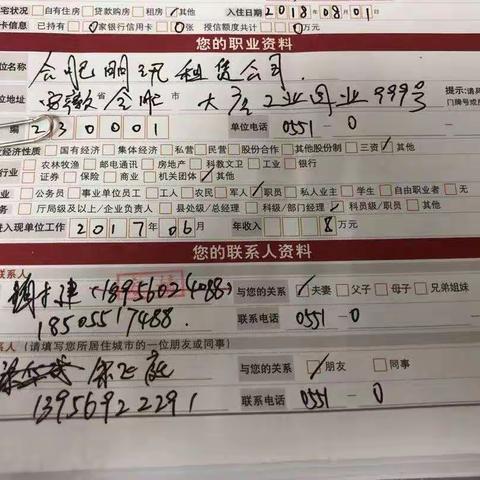 宅状况 □自有住房 □贷款购房 □租房 □其他 入住日期 2018年08月01
卡信息 已持有 0家银行信用卡 0张 授信额度共计 0万元
您的职业资料
位名称 合肥 租赁公司
位地址 安徽省合肥市 工业园 业999号 提示:请具
门牌号或房
编 230001 单位电话 0551-0
经济性质 □国有经济 □集体经济 □私营 □民营 □股份合作 □其他股份制 □三资 ☑其他
行业 □农林牧渔 □邮电通讯 □房地产 □科教文卫 □工业 □银行
□证券 □保险 □商业 □机关团体 ☑其他
业 □公务员 □事业单位员工 □工人 □农民 □军人 ☑职员 □私人业主 □学生 □自由职业者 □无
务 □厅局级及以上/企业负责人 □县处级/总经理 □科级/部门经理 ☑科员级/职员 □其他
进入现单位工作 2017年06月 年收入 8万元
您的联系人资料
联系人
(18956024088) 与您的关系 ☑夫妻 □父子 □母子 □兄弟姐妹
18505517488. 联系电话 0551-0
系人 (请填写您所居住城市的一位朋友或同事)
与您的关系 ☑朋友 □同事
13956922291 联系电话 0551-0